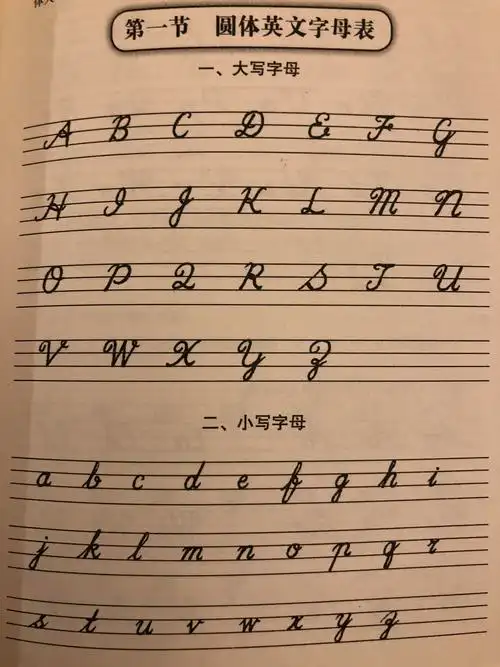 第一节 圆体英文字母表
一、大写字母
A B C D E F G
H I J K L M N
O P Q R S T U
V W X Y Z
二、小写字母
a b c d e f g h i
j k l m n o p q r
s t u v w x y z